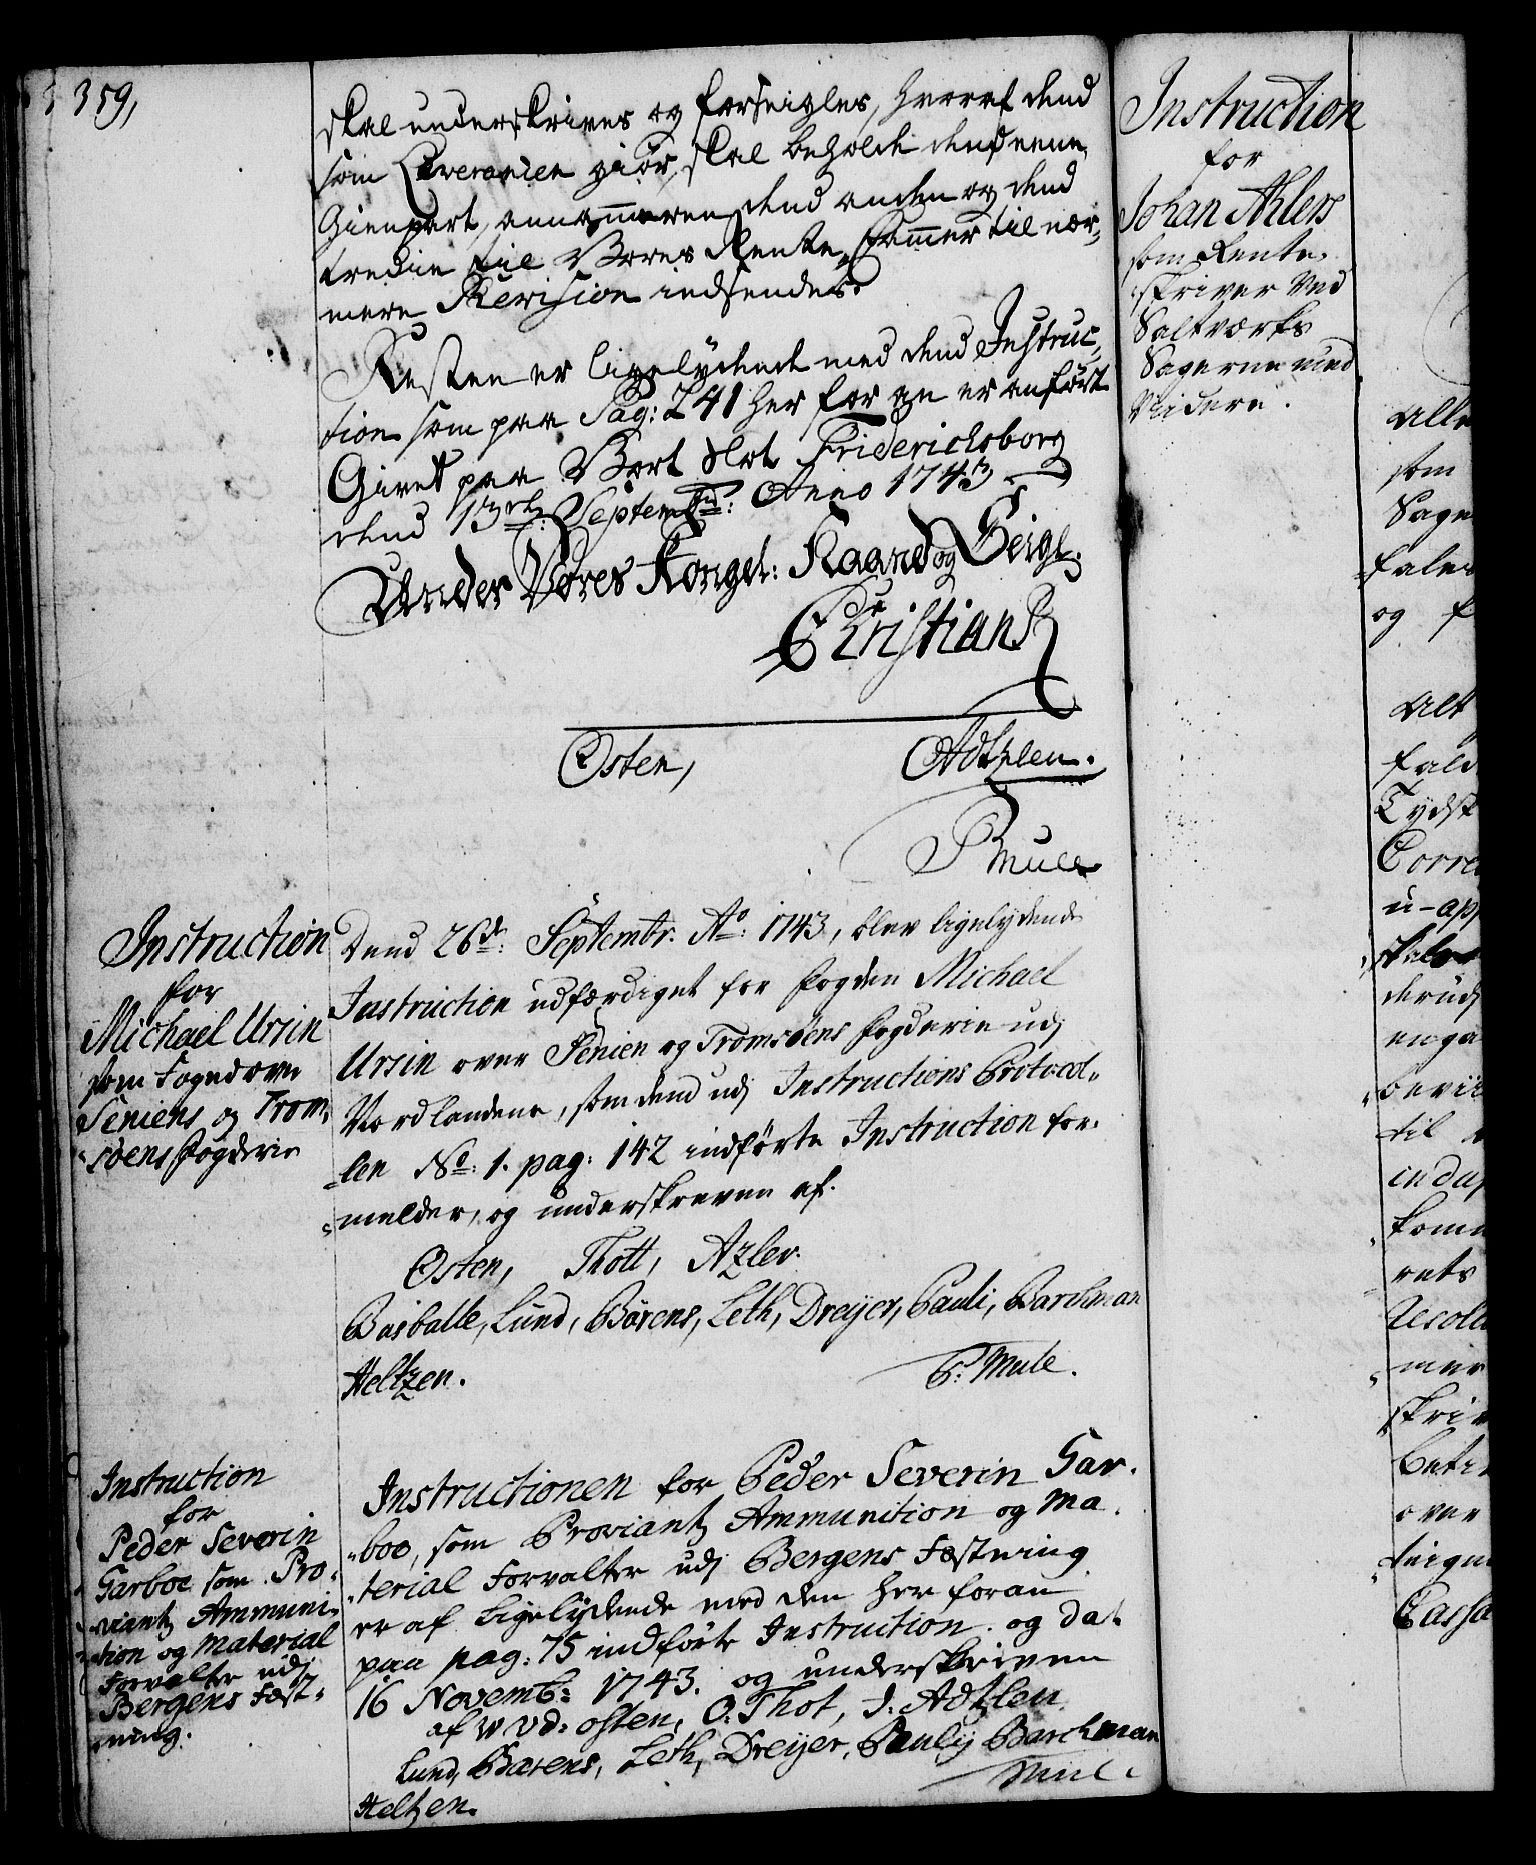 359,
skal underskrives og forseigles, hvoraf dend
som Leverancen giör, skal beholde dend eene
Gienpart, annammeren dend anden og dend
tredie til Vores Rente-Cammer til nær-
mere Revision indsendes.
Resten er ligelydende med dend Instruc-
tion som paa Pag: 241 her for an er anført
Givet paa Vort Slot Friderichsborg
dend 13de Septembr: Anno 1743
Under Vores Kongel: Haand og Seigl.
Christian R
Osten, Adtzlew.
P Mule
Instruction
for
Michael Ursin
som Foged over
Seniens og Trom-
söens Fogderie
Dend 26de: Septembr. Ao: 1743, blev ligelydende
Instruction udfærdiget for Fogden Michael
Ursin over Senien og Tromsöens Fogderie udj
Nordlandene, som dend udj Instructions Protocol-
len No: 1. pag: 142 indførte Instruction for-
melder, og underskreven af.
Osten, Thott, Azlew.
Basballe, Lund, Bärens, Leth, Dreyer, Pauli, Barchman
Heltzen. P. Mule.
Instruction
for
Peder Severin
Garboe som Pro-
viantz Ammuni-
tion og Material
Forvalter udj
Bergens Fæst-
ning.
Instructionen for Peder Severin Gar-
boe, som Proviantz Ammunition og Ma-
terial Forvalter udj Bergens Fæstning
er af Ligelydende med den her foran
paa pag: 75 indførte Instruction. og dat
16 Novemb: 1743. og underskreven
af W V d: Osten, O: Thot, J: Adtzlew
Lund, Bärens, Leth, Dreyer, Pauly Barchman
Heltzen. Mule
Instruction
for
Johan Ahlers
som Rente-
skriver Ved
Saltværks
Sagerne med
Videre.
Alle
som
Sage
falde
og f
Alt
fald
Tydsk
Corre
u-app
skal
derudj
enga
bevil
til
indap
kom
rets
Resolu
mer
skriv
beti
over
Cassa